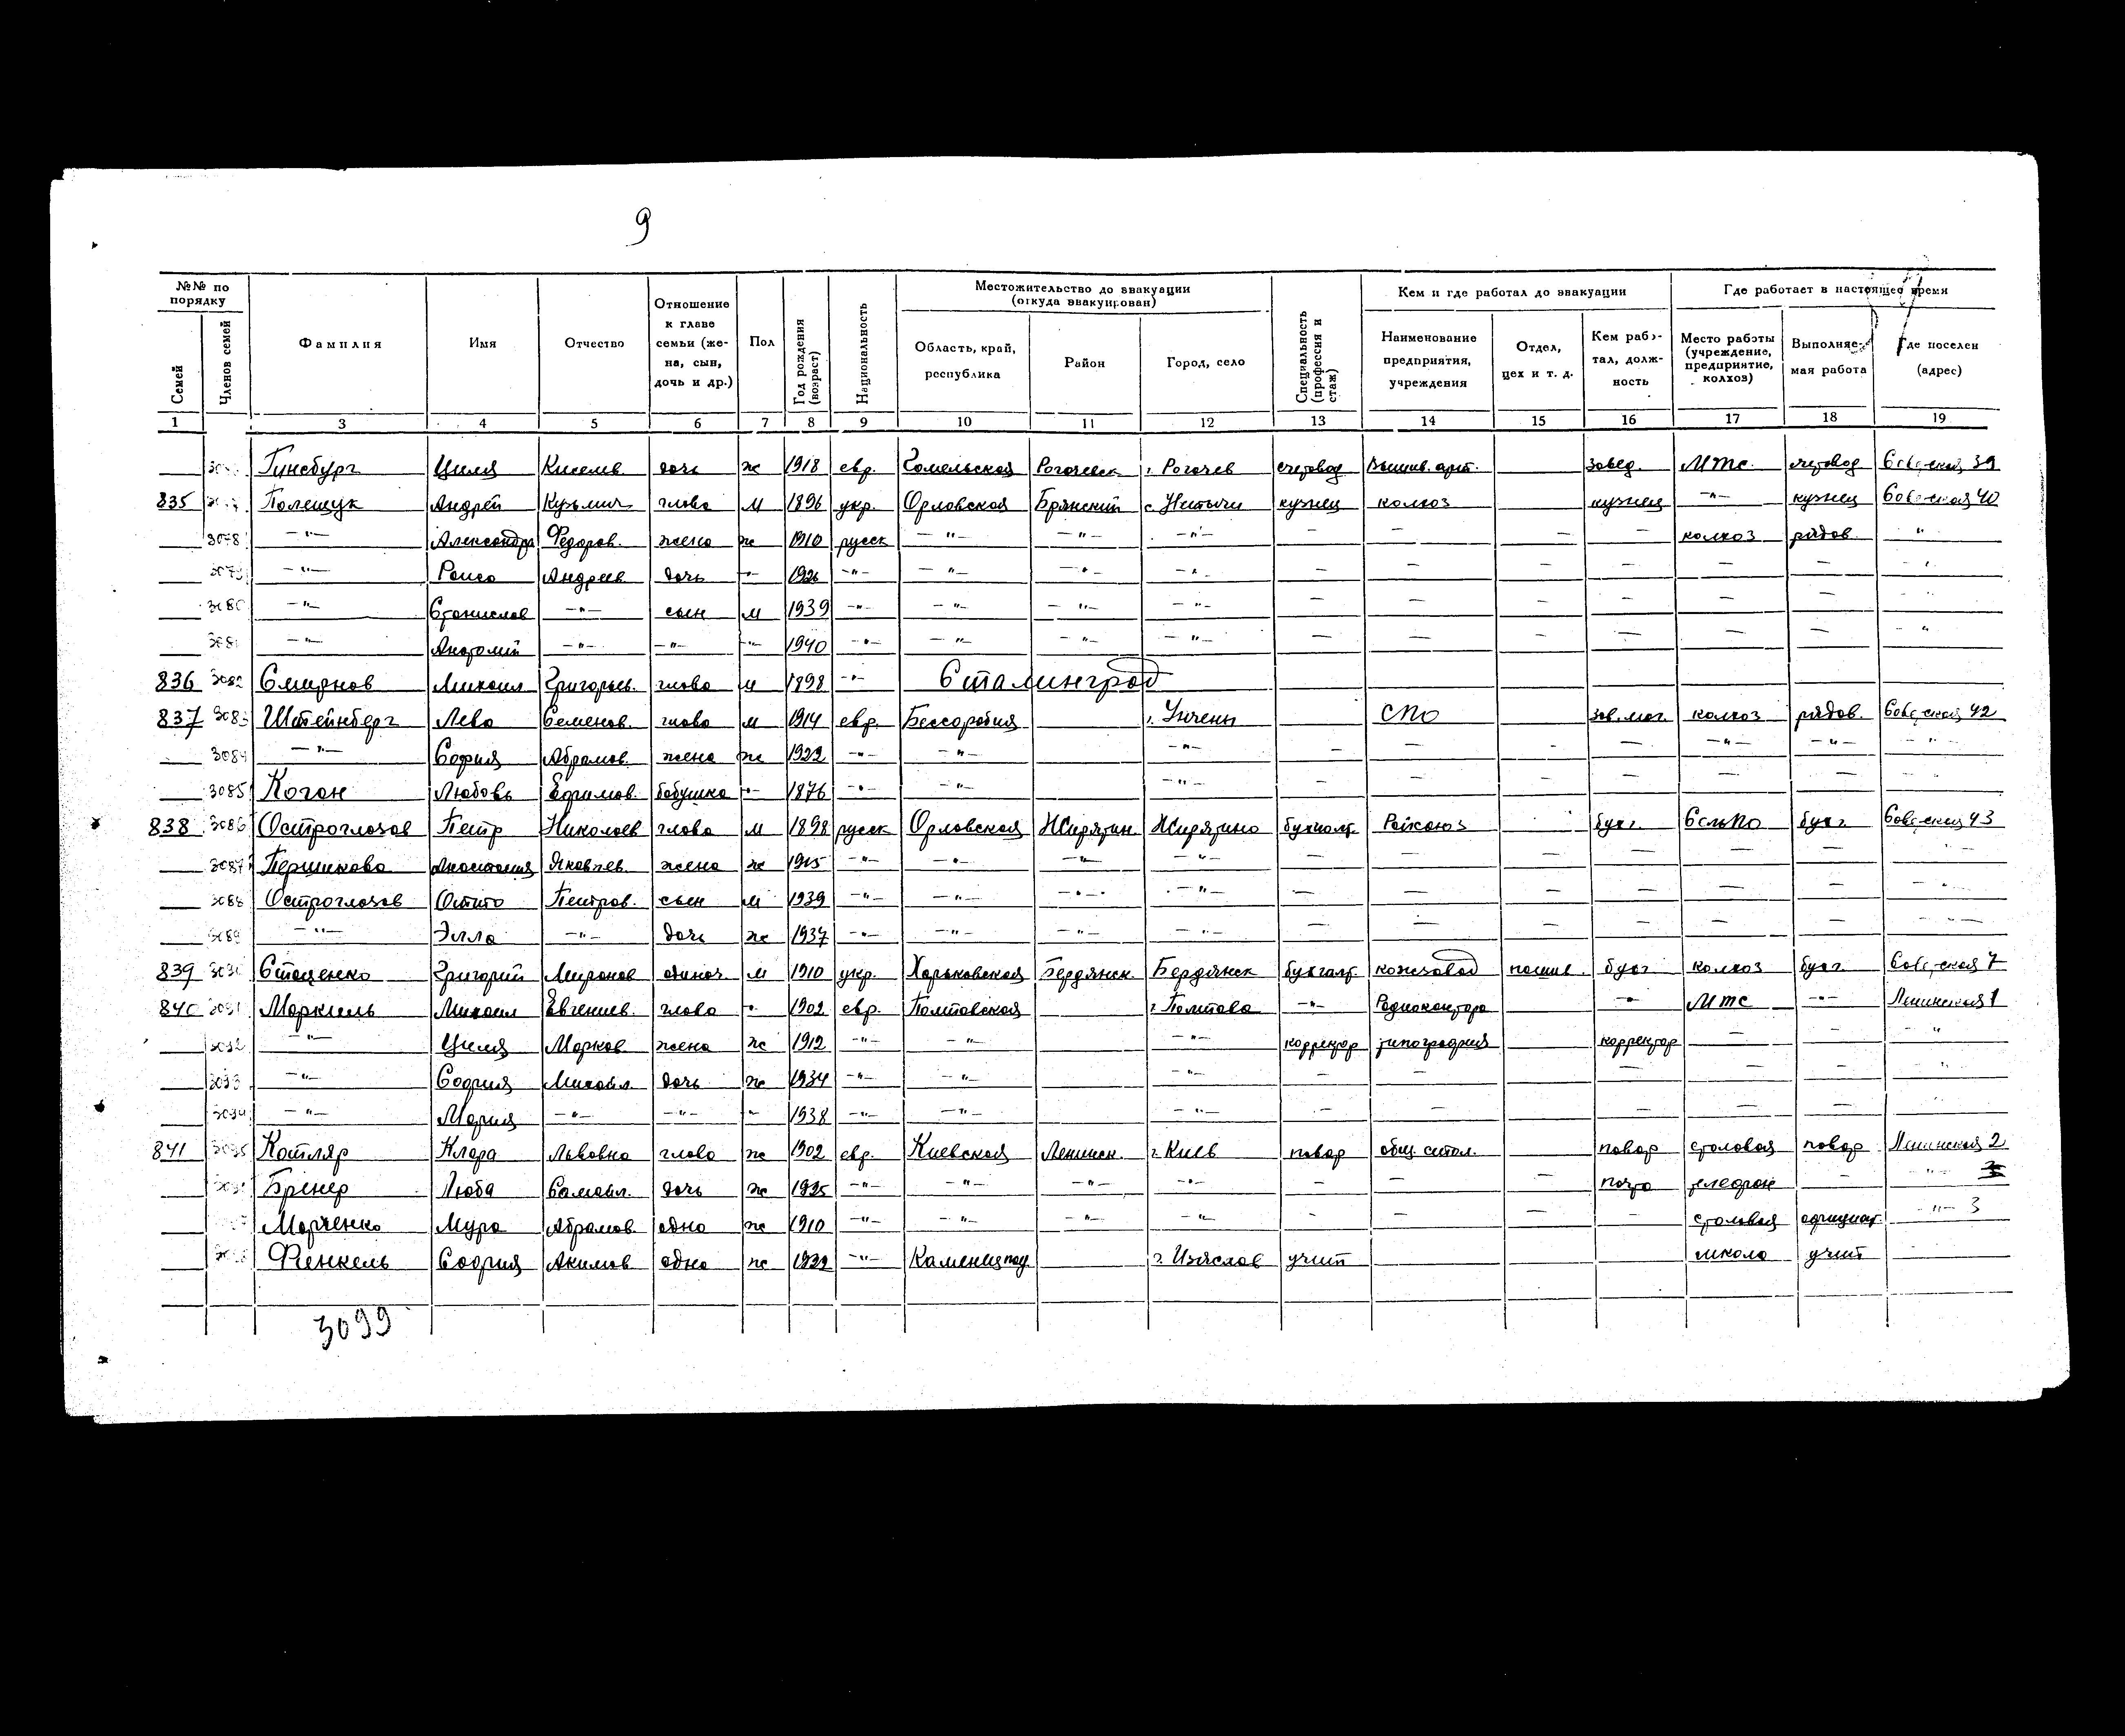 9
№№ по порядку
Семей
Членов семей
Фамилия
Имя
Отчество
Отношение к главе семьи (жена, сын, дочь и др.)
Пол
Год рождения (возраст)
Национальность
Местожительство до эвакуации (откуда эвакуирован)
Область, край, республика
Район
Город, село
Специальность (профессия и стаж)
Кем и где работал до эвакуации
Наименование предприятия, учреждения
Отдел, цех и т. д.
Кем работал, должность
Где работает в настоящее время
Место работы (учреждение, предприятие, колхоз)
Выполняемая работа
Где поселен (адрес)
1 3 4 5 6 7 8 9 10 11 12 13 14 15 16 17 18 19
Гинсбург Циля Киселев дочь ж 1918 евр. Гомельская Рогачевск г. Рогачев счетовод Вышив. арт. завед. МТС. счетовод Советская 39
835 Полещук Андрей Кузьмич глава м 1896 укр. Орловская Брянский кузнец колхоз кузнец -"- кузнец Советская 40
3078 -"- Александра Федоров. жена ж 1910 русск -"- -"- -"- — — — — колхоз рядов. "
3079 -"- Раиса Андреев дочь -"- 1926 -"- -"- -"- -"- — — — — — — "
3080 -"- Станислав -"- сын м 1939 -"- -"- -"- -"- — — — — — — "
3081 -"- Анатолий -"- -"- -"- 1940 -"- -"- -"- -"- — — — — — — "
836 3082 Смирнов Михаил Григорьев. глава м 1898 -"- Сталинград
837 3083 Штейнберг Лева Семенов. глава м 1914 евр. Бессарабия г. Унгены СПО зав. маг. колхоз рядов. Советская 42
3084 -"- София Абрамов. жена ж 1922 -"- -"- -"- — — — — -"- -"- -"-
3085 Коган Любовь Ефимов. бабушка -"- 1876 -"- -"- -"- — — — — — — "
838 3086 Остроглазов Петр Николаев глава м 1898 русск Орловская Жирятин Жирятино бухгалт. Райсоюз бухг. СельПО бухг. Советская 43
3087 Першикова Анастасия Яковлев. жена ж 1915 -"- -"- -"- -"- — — — — — — "
3088 Остроглазов Отто Петров. сын м 1939 -"- -"- -"- -"- — — — — — — "
3089 -"- Элла -"- дочь ж 1937 -"- -"- -"- -"- — — — — — — -"-
839 3090 Стаценко Григорий Миронов одиноч. м 1910 укр. Харьковская Бердянск Бердянск бухгалт. кожзавод пошив. бухг. колхоз бухг. Советская 7
840 3091 Маркиль Михаил Евгениев. глава -"- 1902 евр. Полтавская г. Полтава -"- Радиоконтора -"- МТС -"- Ленинская 1
3092 -"- Циля Марков жена ж 1912 -"- -"- -"- корректор типография корректор — — "
3093 -"- София Михайл. дочь ж 1934 -"- -"- -"- — — — — — "
3094 -"- Мария -"- -"- -"- 1938 -"- -"- -"- — — — — — "
841 3095 Котляр Клара Львовна глава ж 1902 евр. Киевская Ленинск. г. Киев повар общ. стол. повар столовая повар Ленинская 2
Бренер Люба Самойл. дочь ж 1925 -"- -"- -"- -"- — — — почта телефон — -"-
Марченко Мура Абрамов. одна ж 1910 -"- -"- -"- -"- — — — — столовая официант. -"- 3
Френкель София Акимов одна ж -"- Каменецпод. г. Изяслав учит школа учит
3099